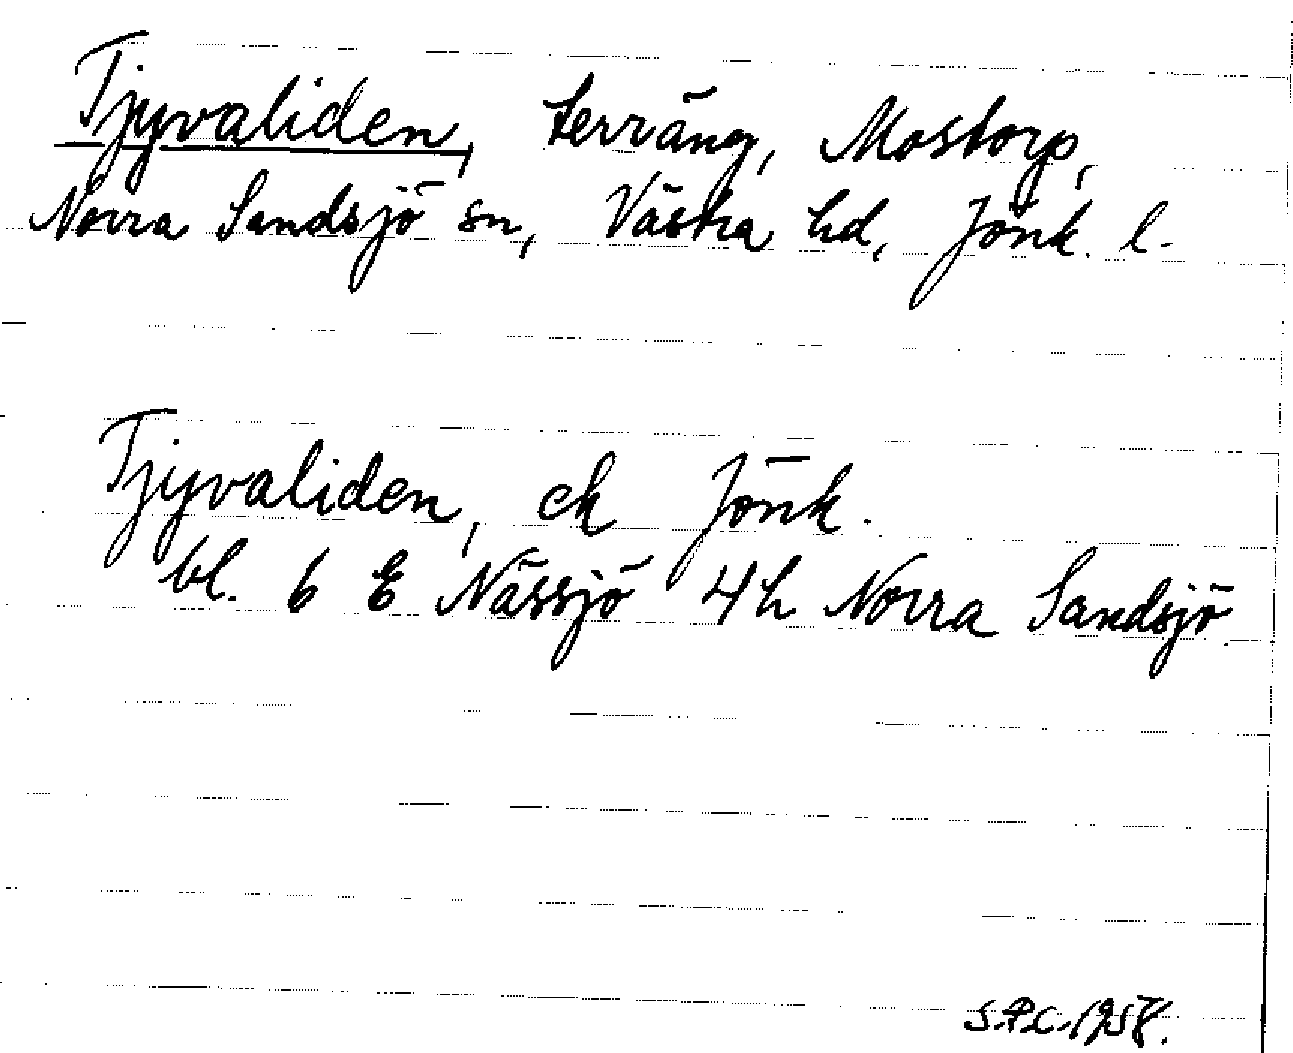 Tjyvaliden, terräng, Mostorp,
Norra Sandsjö sn, Västra hd, Jönk. l.
Tjyvaliden, ek Jönk.
bl. 6 E Nässjö 4h Norra Sandsjö
S.P.C. 1958.